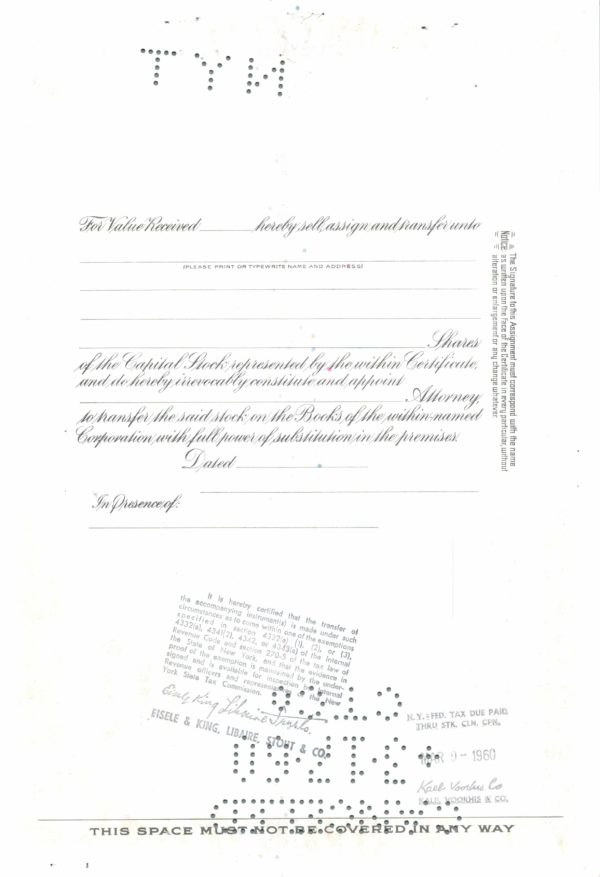 For Value Received hereby sell, assign and transfer unto
(PLEASE PRINT OR TYPEWRITE NAME AND ADDRESS)
Shares
of the Capital Stock represented by the within Certificate,
and do hereby irrevocably constitute and appoint
Attorney,
to transfer the said stock on the Books of the within-named
Corporation, with full power of substitution in the premises.
Dated
In presence of:
Notice: The Signature to this Assignment must correspond with the name
as written upon the Face of the Certificate in every particular, without
alteration or enlargement or any change whatever.
It is hereby certified that the transfer of
the accompanying instrument(s) is made under such
circumstances as to come within one of the exemptions
specified in section 4322(a) (1), (2), or (3),
4332(a), 4341(2), 4342, or 4343(a) of the Internal
Revenue Code and section 270-5 of the tax law of
the State of New York, and that the evidence in
proof of the exemption is maintained by the under-
signed and is available for inspection by Internal
Revenue officers and representatives of the New
York State Tax Commission.
Eisele King Libaire Stout & Co.
EISELE & KING, LIBAIRE, STOUT & CO.
N.Y. - FED. TAX DUE PAID
THRU STK. CLN. CPN.
MAR 9 - 1960
Kalb Voorhis & Co
KALB, VOORHIS & CO.
THIS SPACE MUST NOT BE COVERED IN ANY WAY